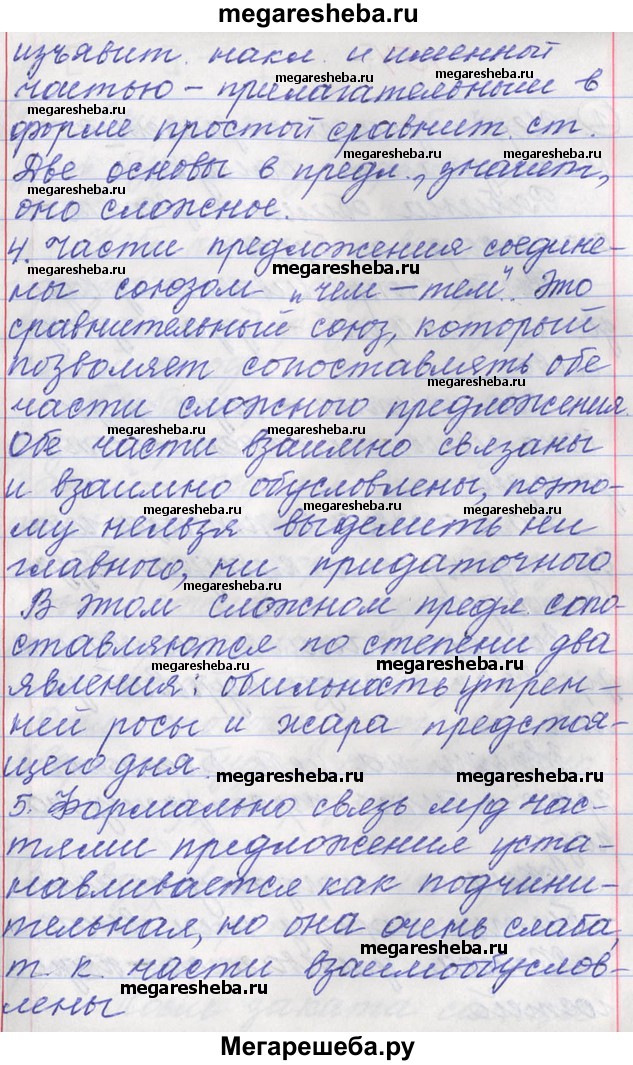 megaresheba.ru
изъявит. накл. и именной
megaresheba.ru
частью – прилагательным в
megaresheba.ru
форме простой сравнит. ст.
megaresheba.ru megaresheba.ru
Две основы в предл., значит,
оно сложное.
megaresheba.ru
4. Части предложения соедине-
megaresheba.ru
ны союзом „чем – тем". Это
сравнительный союз, который
позволяет сопоставлять обе
megaresheba.ru
части сложного предложения.
megaresheba.ru
Обе части взаимно связаны
megaresheba.ru
и взаимно обусловлены, поэто-
му нельзя выделить ни
главного, ни придаточного
megaresheba.ru
В этом сложном предл. сопо-
ставляются по степени два
megaresheba.ru megaresheba.ru
явления: обильность утрен-
ней росы и жара предстоя-
щего дня.
megaresheba.ru megaresheba.ru
5. Формально связь м/д час-
тями предложения уста-
навливается как подчини-
тельная, но она очень слаба,
megaresheba.ru
т. к. части взаимообуслов-
megaresheba.ru
лены
Мегарешеба.ру